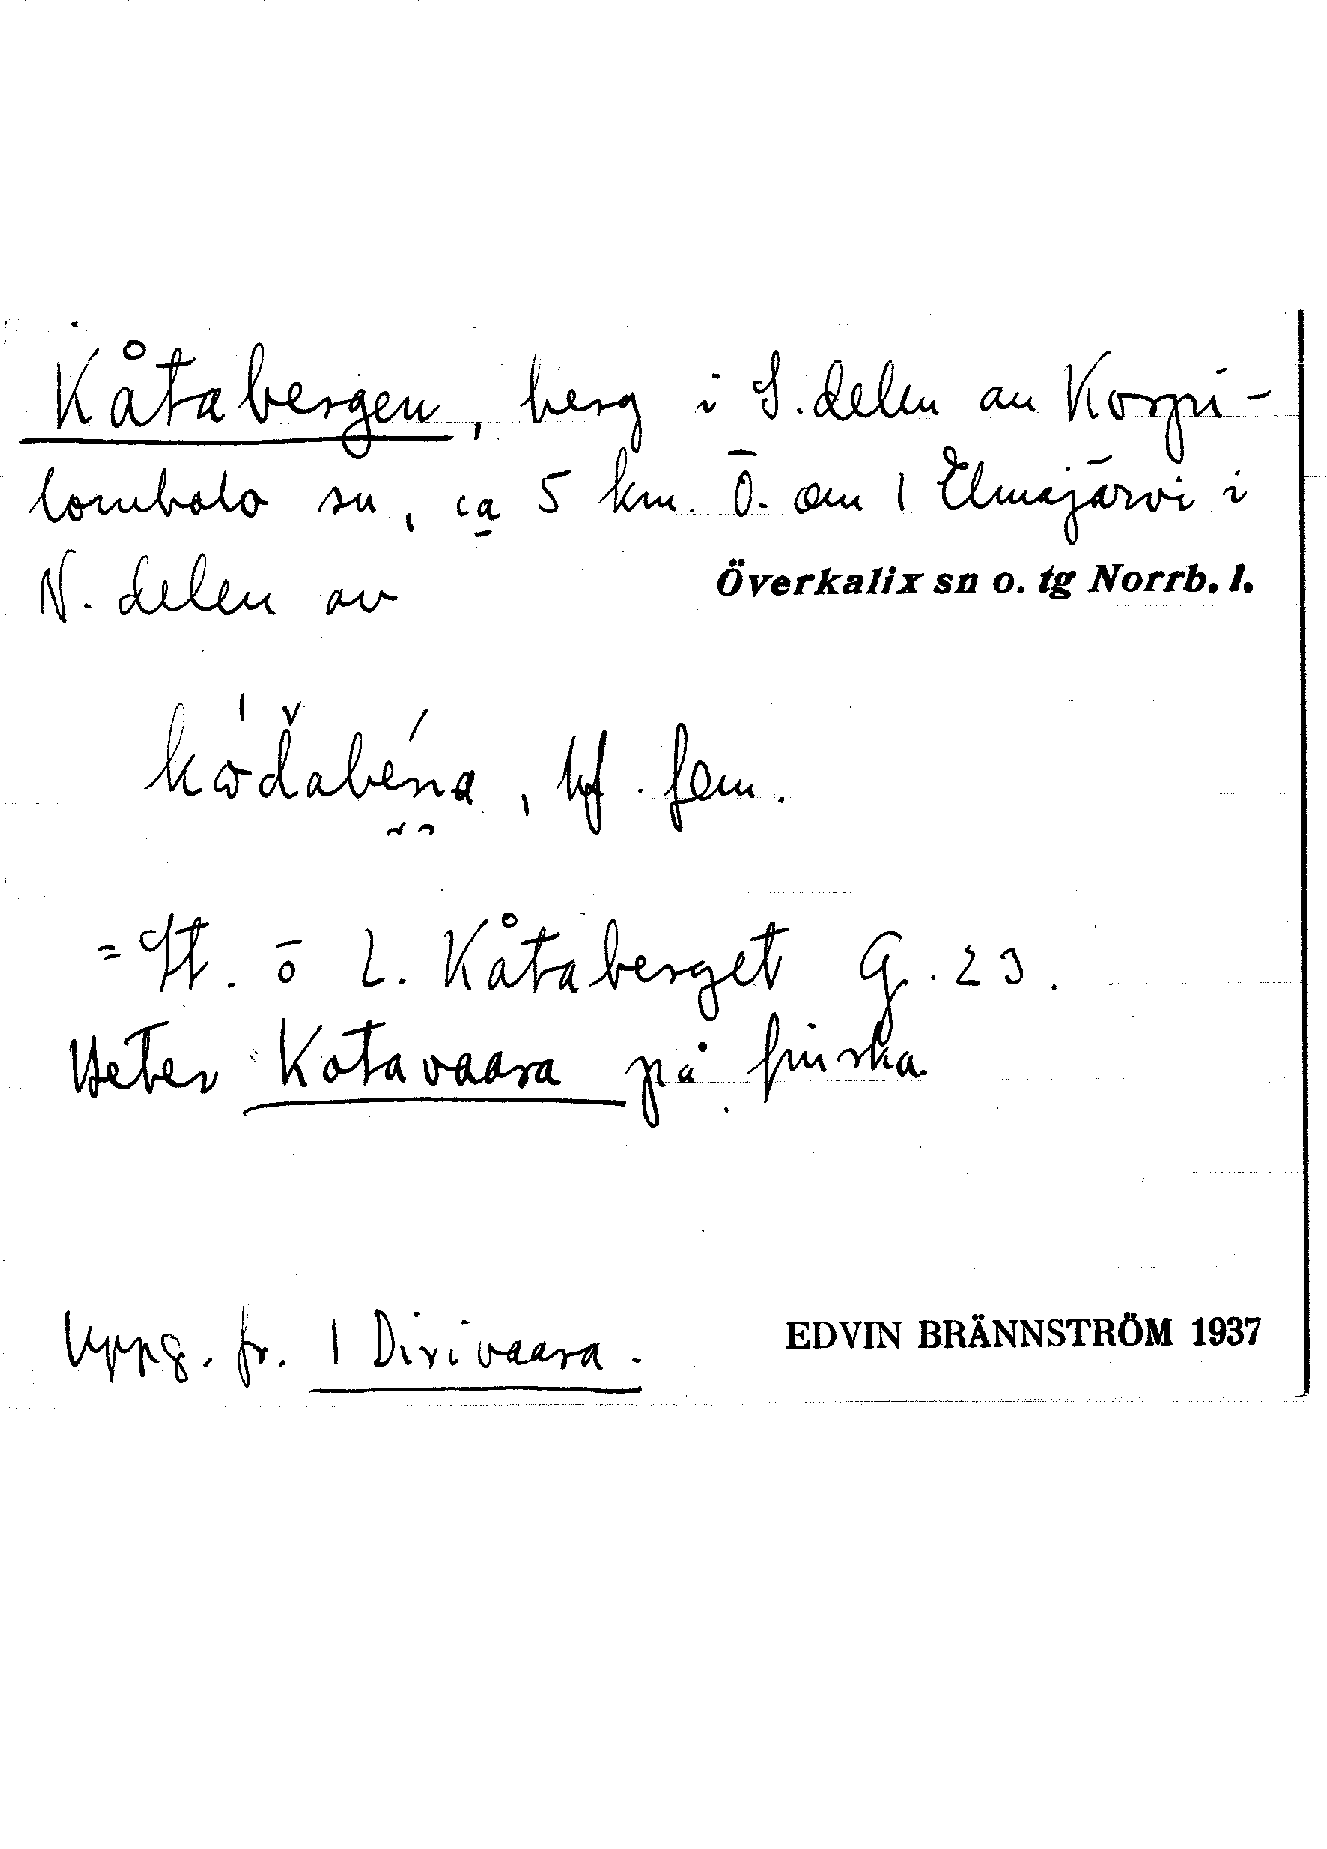 Kåtabergen, berg i S. delen av Korpi-
lombolo sn, ca 5 km. Ö. om l Elmajärvi i
N. delen av Överkalix sn o. tg Norrb. l.
bf. fem.
= St. o L. Kåtaberget G. 23.
Heter Kotavaara på finska.
Uppg. fr. l Dirivaara.
EDVIN BRÄNNSTRÖM 1937